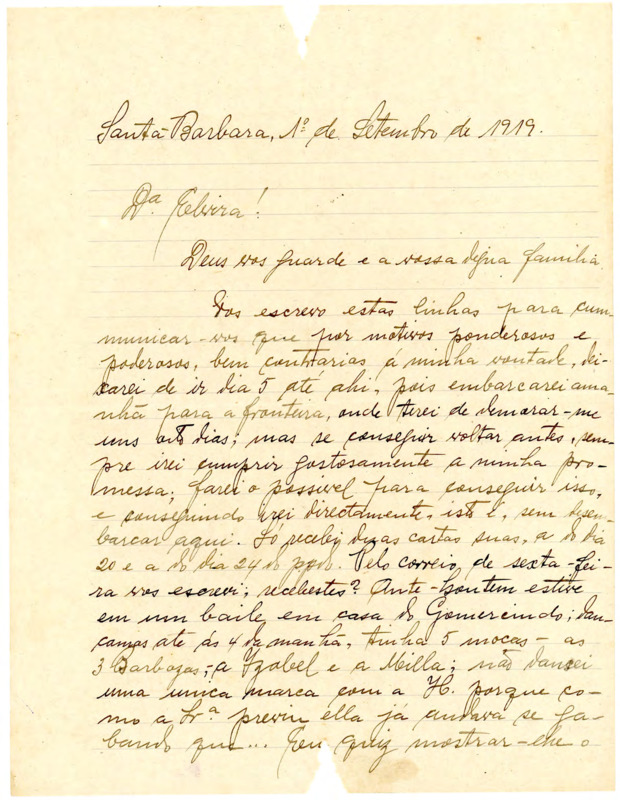 Santa-Barbara, 1º de Setembro de 1919.
Dª Elvira!
Deus vos guarde e a vossa digna familia
Vos escrevo estas linhas para cum-
municar-vos que por motivos ponderosos e
poderosos, bem contrarias á minha vontade, dei-
xarei de ir dia 5 até ahi, pois embarcarei ama-
nhã para a fronteira, onde terei de demorar-me
uns oito dias; mas se conseguir voltar antes, sem-
pre irei cumprir gostosamente a minha pro-
messa; farei o possivel para conseguir isso,
e conseguindo irei directamente, isto é, sem desem-
barcar aqui. Só recebi duas cartas suas, a do dia
20 e a do dia 24 do ppdo. Pelo correio de sexta-fei-
ra vos escrevi; recebestes? Ante-hontem estive
em um baile, em casa do Gomercindo; dan-
çamos até ás 4 da manhã, tinha 5 moças - as
3 Barbozas, a Izabel e a Milla; não dancei
uma unica marca com a H. porque co-
mo a Srª previu ella já andava se ga-
bando que... Eu quiz mostrar-lhe o